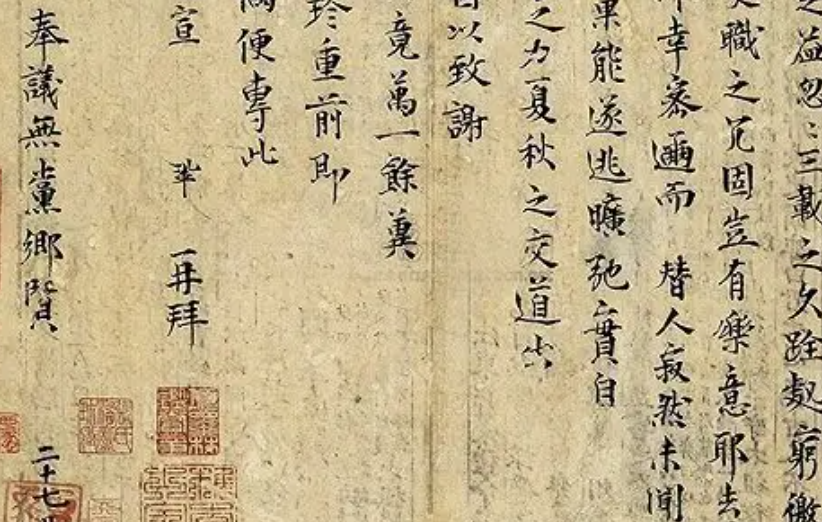 之益忽〻三載之久跧處窮徼
職之冗固豈有樂意耶去
幸密邇而 替人寂然未聞
果能遂逃曠弛實自
之力夏秋之交道出
因以致謝
竟萬一餘冀
珍重前即
偶便專此
宣 鞏 再拜
奉議無黨鄉賢 二十七